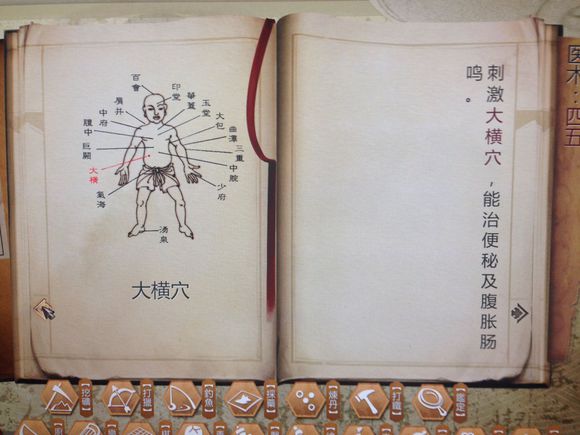 百會
印堂
華蓋
肩井
玉堂
中府
大包
膻中
曲澤
巨闕
三重
大橫
中脘
氣海
少府
湧泉
大横穴
刺激大横穴，能治便秘及腹胀肠
鸣。
医术：四五
【挖礦】
【打獵】
【釣魚】
【採藥】
【煉丹】
【打鐵】
【鑑定】